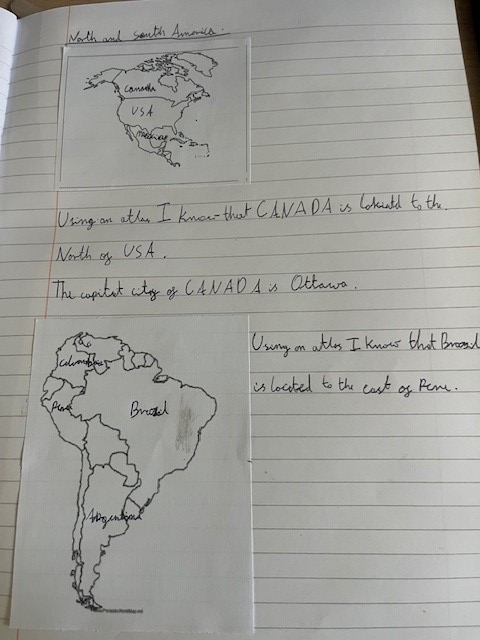 North and South America.
Canada
USA
Using an atlas I know that CANADA is lokatd to the
North of USA.
The capital city of CANADA is Ottawa.
Columbia
Peru
Brazil
Argentina
Using an atlas I know that Brazil
is located to the east of Peru.